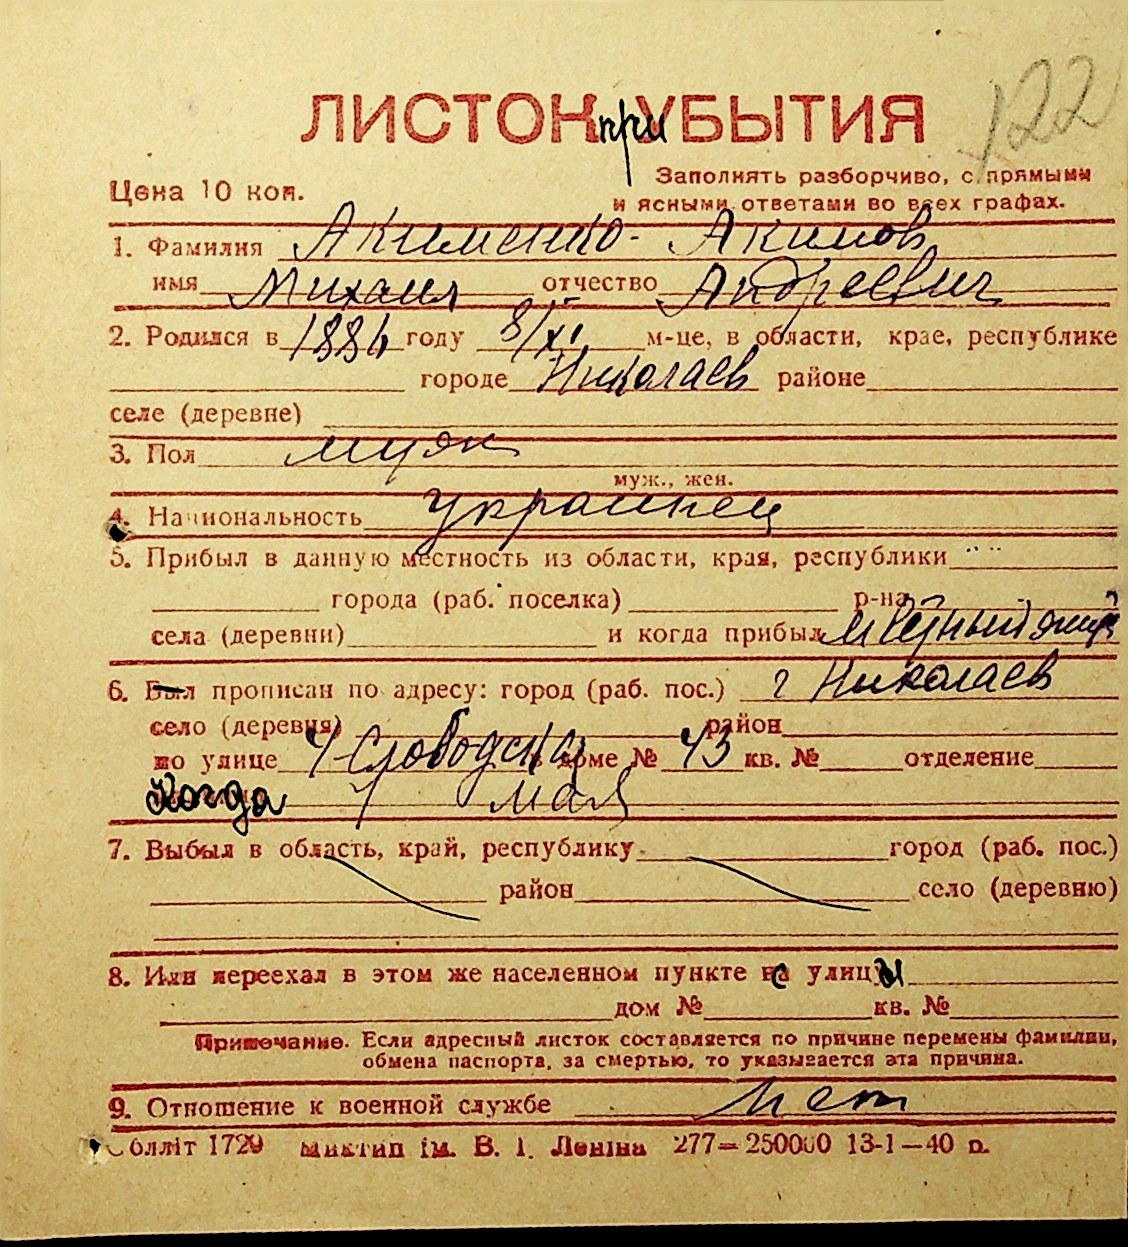 122
ЛИСТОК при УБЫТИЯ
Цена 10 коп.
Заполнять разборчиво, с прямыми
и ясными ответами во всех графах.
1. Фамилия Акименко- Акимов
имя Михаил отчество Андреевич
2. Родился в 1886 году 8/XI м-це, в области, крае, республике
городе Николаев районе
селе (деревне)
3. Пол муж
муж., жен.
4. Национальность украинец
5. Прибыл в данную местность из области, края, республики
города (раб. поселка) р-на
села (деревни) и когда прибыл
6. Был прописан по адресу: город (раб. пос.) г Николаев
село (деревня) район
по улице 4 Слободская в доме № 43 кв. № отделение
Когда 1 мая
7. Выбыл в область, край, республику город (раб. пос.)
район село (деревню)
8. Или переехал в этом же населенном пункте с улицы
дом № кв. №
Примечание. Если адресный листок составляется по причине перемены фамилии,
обмена паспорта, за смертью, то указывается эта причина.
9. Отношение к военной службе Нет
Обліт 1729 ім. В. І. Леніна 277—250000 13-1—40 р.